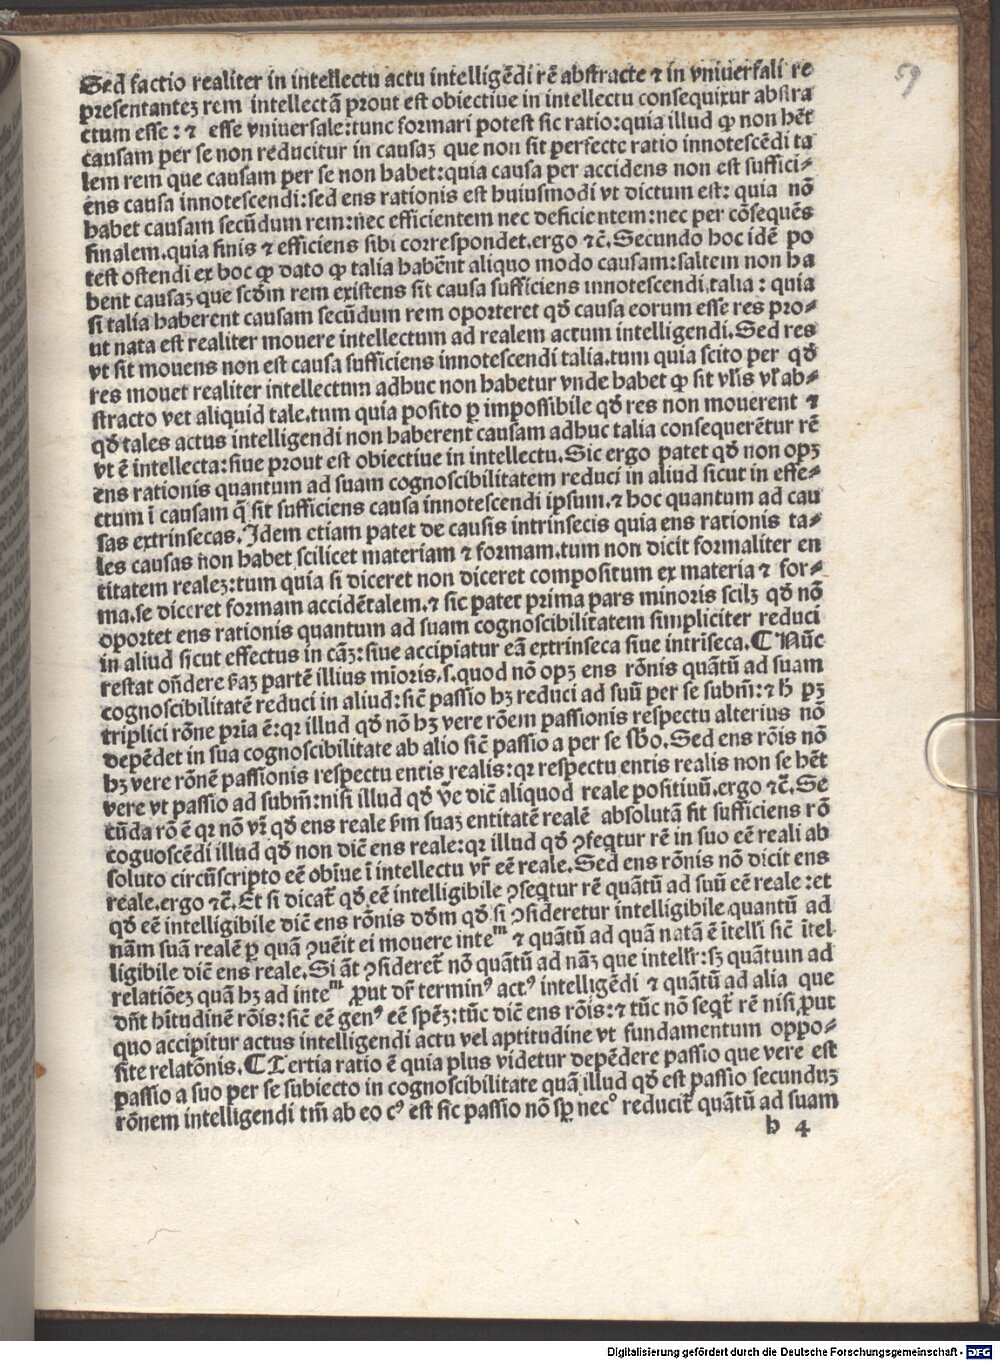 59
Sed factio realiter in intellectu actu intelligēdi rē abstracte ⁊ in vniuersali re
presentanteʒ rem intellectā prout est obiectiue in intellectu consequitur abstra
ctum esse: ⁊ esse vniuersale: tunc formari potest sic ratio: quia illud qꝫ non hēt
causam per se non reducitur in causaʒ que non sit perfecte ratio innotescēdi ta
lem rem que causam per se non habet: quia causa per accidens non est suffici-
ens causa innotescendi: sed ens rationis est huiusmodi vt dictum est: quia nō
habet causam secūdum rem: nec efficientem nec deficientem: nec per cōsequēs
finalem. quia finis ⁊ efficiens sibi correspondet. ergo ⁊c̄. Secundo hoc idē po
test ostendi ex hoc qꝫ dato qꝫ talia habēnt aliquo modo causam: saltem non ha
bent causaʒ que scd̄m rem existens sit causa sufficiens innotescendi talia: quia
si talia haberent causam secūdum rem oporteret qd̄ causa eorum esse res pro-
ut nata est realiter mouere intellectum ad realem actum intelligendi. Sed res
vt sit mouens non est causa sufficiens innotescendi talia. tum quia scito per qd̄
res mouet realiter intellectum adhuc non habetur vnde habet qꝫ sit vl̄is vl̄ ab-
stracto vet aliquid tale. tum quia posito ꝑ impossibile qd̄ res non mouerent ⁊
qd̄ tales actus intelligendi non haberent causam adhuc talia consequerētur rē
vt ē intellecta: siue prout est obiectiue in intellectu. Sic ergo patet qd̄ non opʒ
ens rationis quantum ad suam cognoscibilitatem reduci in aliud sicut in effe-
ctum ī causam q̄ sit sufficiens causa innotescendi ipsum. ⁊ hoc quantum ad cau
sas extrinsecas. Idem etiam patet de causis intrinsecis quia ens rationis ta-
les causas non habet scilicet materiam ⁊ formam. tum non dicit formaliter en
titatem realeʒ: tum quia si diceret non diceret compositum ex materia ⁊ for-
ma. se diceret formam accidētalem. ⁊ sic patet prima pars minoris scilʒ qd̄ nō
oportet ens rationis quantum ad suam cognoscibilitatem simpliciter reduci
in aliud sicut effectus in cāʒ: siue accipiatur eā extrinseca siue intriseca. ¶ Nūc
restat on̄dere scd̄aʒ partē illius mioris. s. quod nō opʒ ens rōnis quātū ad suam
cognoscibilitatē reduci in aliud: sic̄ passio hʒ reduci ad suū per se subm̄: ⁊ h̄ pʒ
triplici rōne pria ē: qr illud qd̄ nō hʒ vere rōem passionis respectu alterius nō
depēdet in sua cognoscibilitate ab alio sic̄ passio a per se sb̄o. Sed ens rōis nō
hʒ vere rōnē passionis respectu entis realis: qr respectu entis realis non se hēt
vere vt passio ad subm̄: nisi illud qd̄ v̄e dic̄ aliquod reale positiuū. ergo ⁊c̄. Se
cūda rō ē qr nō vr̄ qd̄ ens reale scd̄m suaʒ entitatē realē absolutā sit sufficiens rō
coguoscēdi illud qd̄ non dic̄ ens reale: qr illud qd̄ ꝯseqtur rē in suo eē reali ab
soluto circūscripto eē obīue ī intellectu vr̄ eē reale. Sed ens rōnis nō dicit ens
reale. ergo ⁊c̄. Et si dicat̄ qd̄ eē intelligibile ꝯseqtur rē quātū ad suū eē reale: et
qd̄ eē intelligibile dic̄ ens rōnis dd̄m qd̄ si ꝯsideretur intelligibile quantū ad
nām suā realē ꝑ quā ꝯuēit ei mouere inteᵐ ⁊ quātū ad quā natā ē ītell'i sic̄ ītel
ligibile dic̄ ens reale. Si āt ꝯsideret̄ nō quātū ad nāʒ que intell'r: sʒ quātum ad
relatiōeʒ quā hʒ ad inteᵐ ꝓut dr̄ terminꝰ actꝰ intelligēdi ⁊ quātū ad alia que
dn̄t hītudinē rōis: sic̄ eē genꝰ eē spēʒ: tūc dic̄ ens rōis: ⁊ tūc nō seqt̄ rē nisi ꝓut
quo accipitur actus intelligendi actu vel aptitudine vt fundamentum oppo-
site relatōnis. ¶ Tertia ratio ē quia plus videtur depēdere passio que vere est
passio a suo per se subiecto in cognoscibilitate quā illud qd̄ est passio secunduʒ
rōnem intelligendi tm̄ ab eo cꝰ est sic passio nō sꝑ necꝰ reducit̄ quātū ad suam
h 4
Digitalisierung gefördert durch die Deutsche Forschungsgemeinschaft - DFG